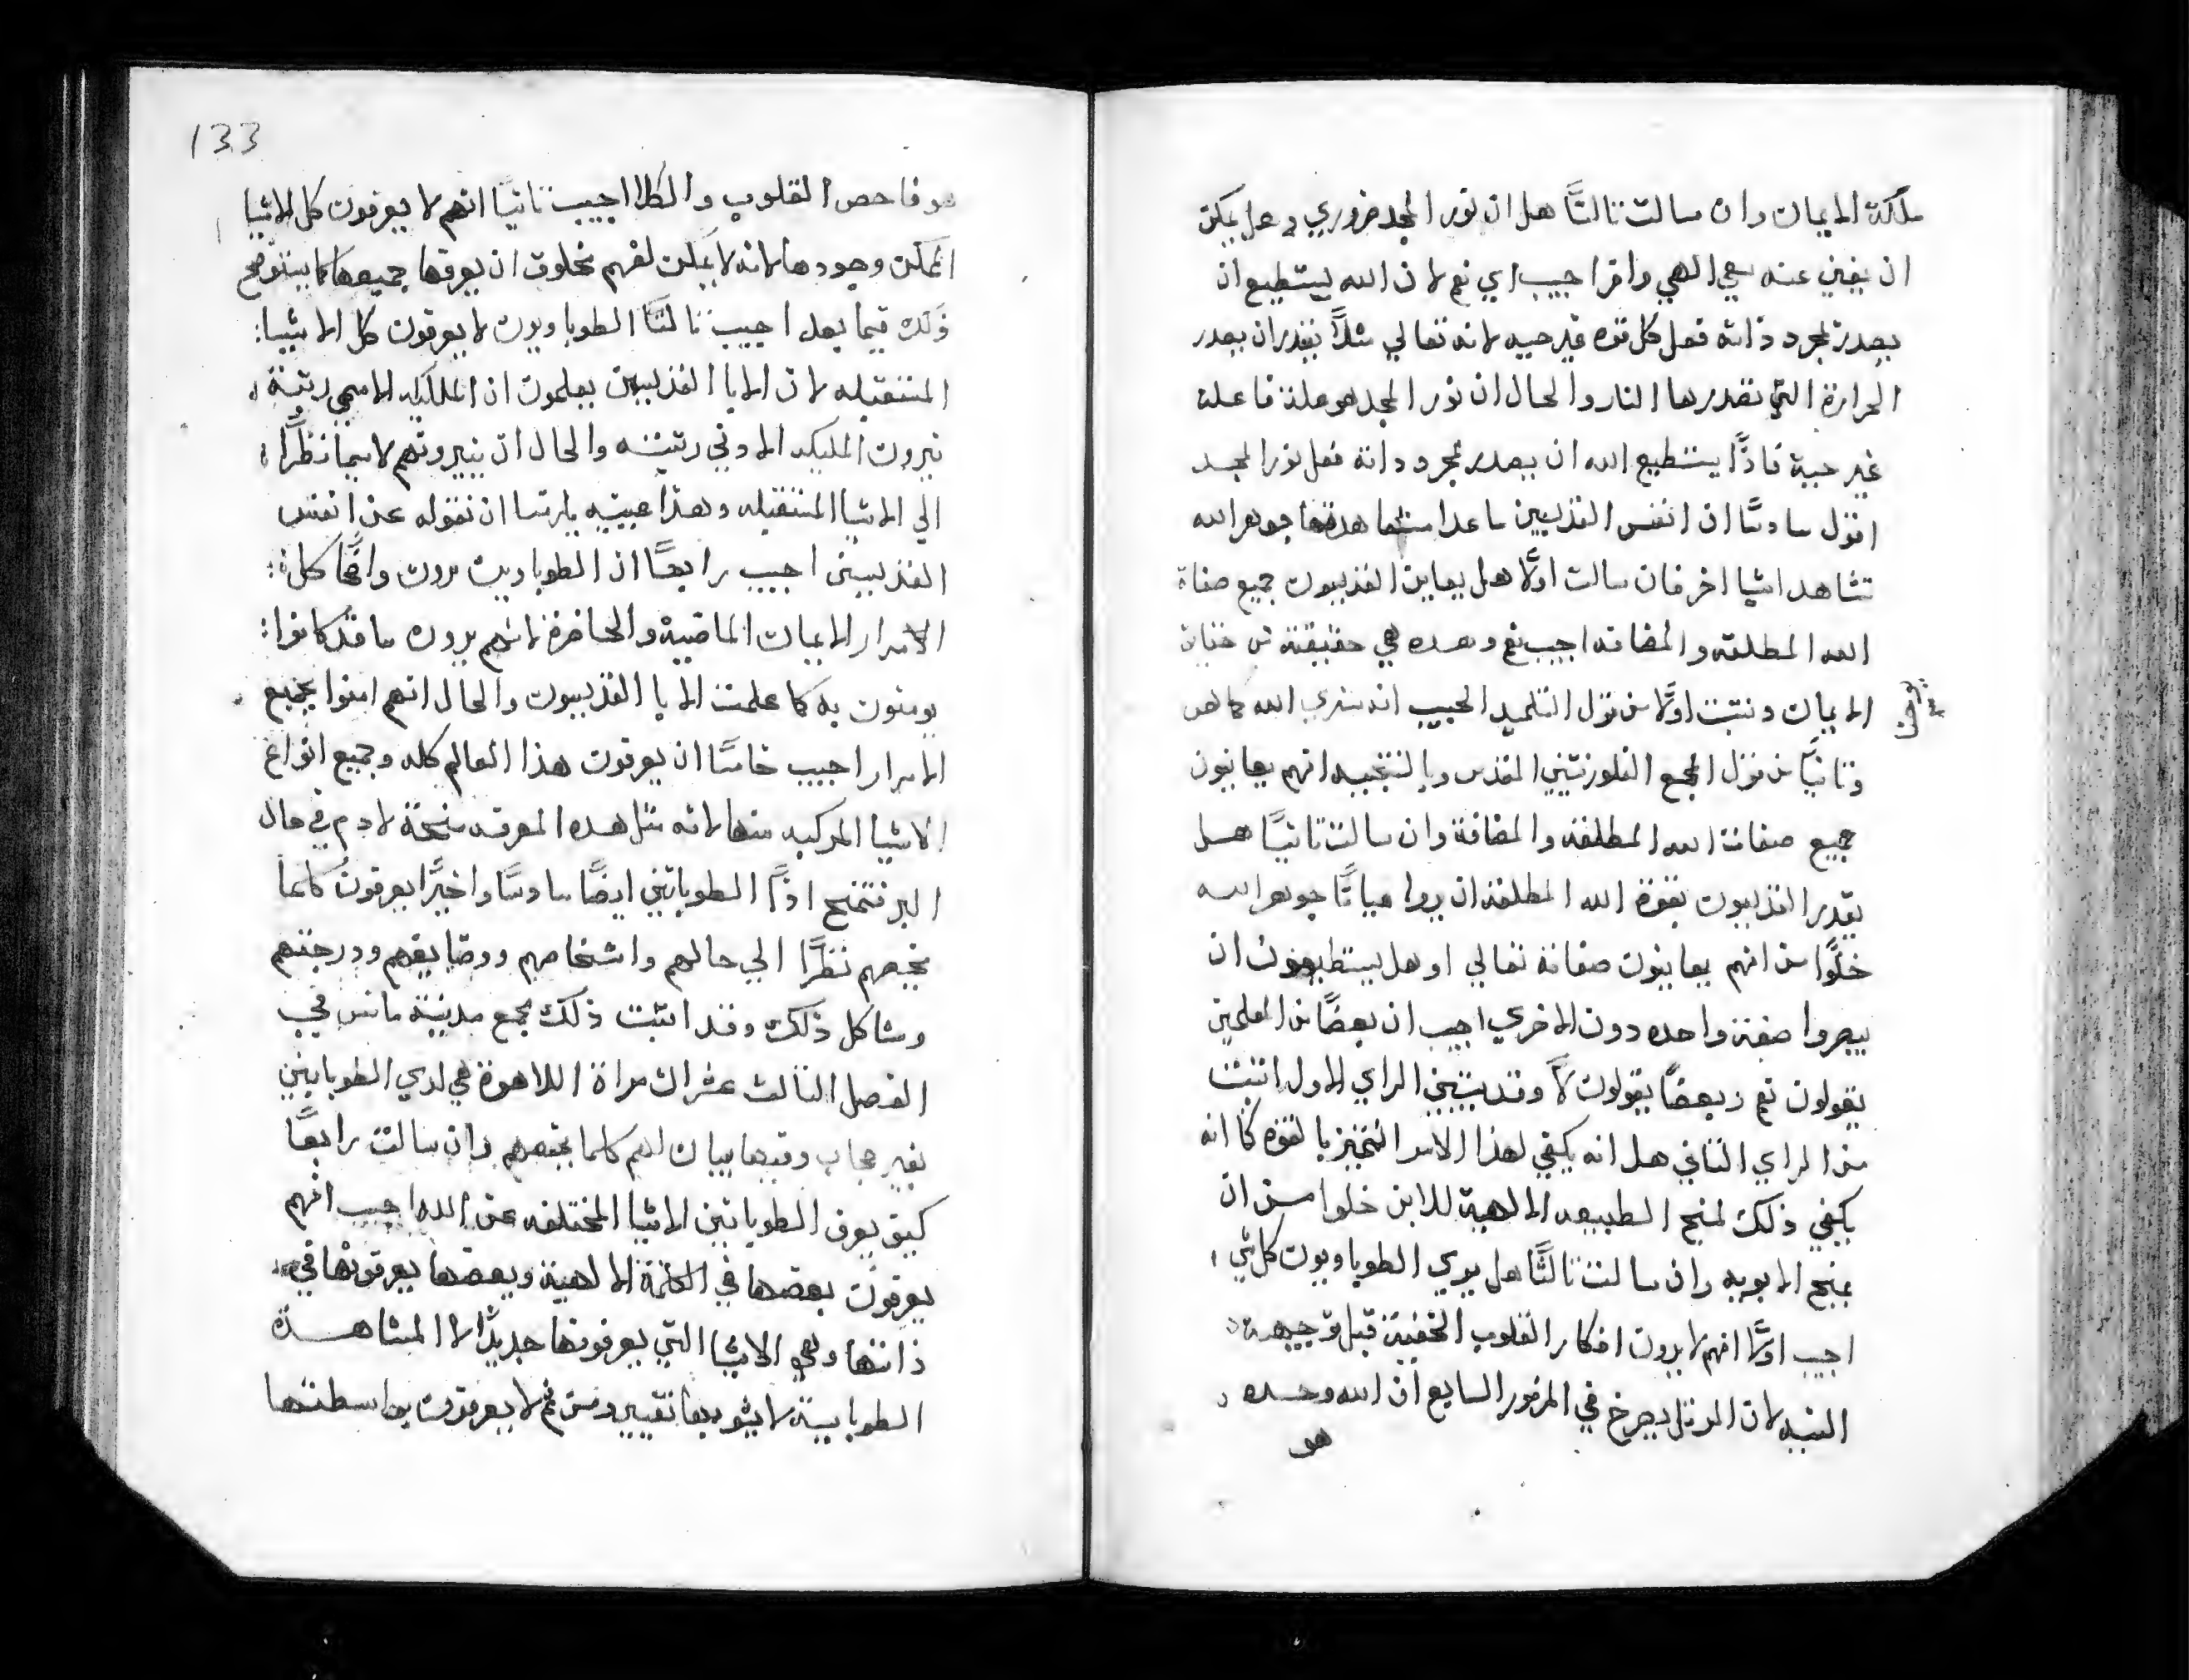 ملكة الايمان وان سالت ثالثًا هل ان نور المجد ضروري وهل يمكن
ان يغني عنه بعي الهي وافر اجيب اي نعم لان الله يستطيع ان
يصدر بمجرد ذاته فعل كل قوه غير حييه لانه تعالي مثلًا يقدر ان يصدر
الحرارة التي تصدرها النار والحال ان نور المجد هو علة فاعلة
غير حيية فاذًا يستطيع الله ان يصدر بمجرد ذاته فعل نور المجد
اقول سادسًا ان انفس القديسين ماعدا مشاهدتها جوهر الله
تشاهد اشيا اخر فان سالت اولًا هل يعاين القديسون جميع صفاة
الله المطلقه والمضافه اجيب نعم وهذه هي حقيقة من حقايق
الايمان ونتبت اولًا من قول التلميد الحبيب انه سنري الله كما هو
وثانيًا من قول المجمع الفلورنتيني المقدس وبالنتيجه انهم يعاينون
جميع صفات الله المطلقه والمضافة وان سالت ثانيًا هل
يقدر القديسون بقوة الله المطلقه ان يروا عيانًا جوهر الله
خلوًا من انهم يعاينون صفاته تعالي او هل يستطيعون ان
يبصروا صفة واحده دون الاخري اجيب ان بعضًا من المعلمين
يقولون نعم وبعضًا يقولون لا وقد يتبين الراي الاول اتبت
من الراي الثاني هل انه يكفي لهذا الامر التمييز بالقوه كما انه
يكفي ذلك لمنح الطبيعه الالهية للابن خلوا من ان
يمنح الابويه وان سالت ثالثًا هل يري الطوباويون كل شي
اجيب اولًا انهم لا يرون افكار القلوب الخفية قبل توجيهه
النيه لان المرتل يصرخ في المزمور السابع ان الله وحده
هو
133
هو فاحص القلوب والكلا اجيب ثانيًا انهم لا يعرفون كل الاشيا
الممكن وجودها لانه لا يمكن لفهم مخلوق ان يعرفها جميعها كما سيتوضح
ذلك فيما بعد اجيب ثالثًا الطوباويون لا يعرفون كل الاشيا
المستقبله لان الابا القديسين يعلمون ان الملايكه الاسمي رتبة
ينيرون المليكه الادني رتبه والحال ان ينيرونهم لاسيما نظرًا
الي الاشيا المستقبله وهذا عينه يلزمنا ان نقوله عن انفس
القديسين اجيب رابعًا ان الطوباويين يرون واضحًا كل
الاسرار الايمان الماضية والحاضرة لانهم يرون ما قد كانوا
يومنون به كما علمت الابا القديسون والحال انهم امنوا بجميع
الاسرار اجيب خامسًا ان يعرفون هذا العالم كله وجميع انواع
الاشيا المركبه منها لانه مثل هذه المعرفه منحة لادم في حال
البر فتمنح اذًا الطوباتين ايضًا سادسًا واخيرًا يعرفون كلما
يخصهم نظرًا الي حالهم واشخاصهم ووضايفهم ودرجتهم
وشاكل ذلك وقد اثبت ذلك مجمع مدينة مانس في
الفصل الثالث عشر ان مراة اللاهوة هي لدي الطوبانيين
بغير حجاب وفيها يبان لهم كلما يخصهم وان سالت رابعًا
كيف يعرف الطوباتين الاشيا المختلفه عن الله اجيب انهم
يعرفون بعضها في الكلمة الالهية وبعضها يعرفونها في
ذاتها وهي الاشيا التي يعرفونها جديدًا لا المشاهدة
الطوباية لا يشوبها تغيير ومن ثم لا يعرفون بواسطتها